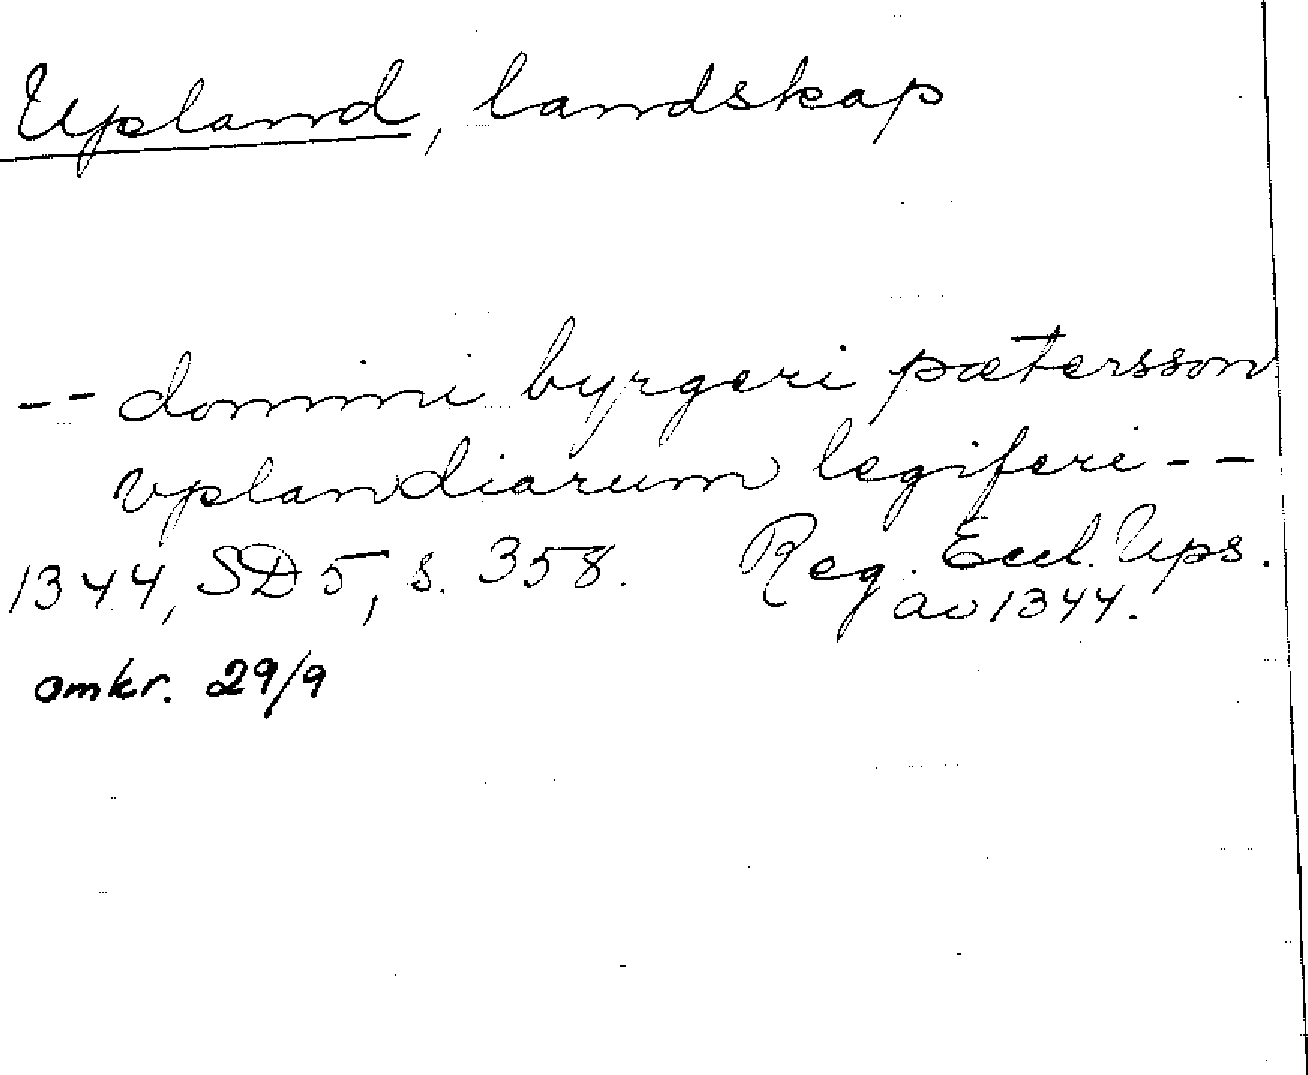 Upland, landskap
-- domini byrgeri pætersson
vplandiarum legiferi --
1344, SD 5, s. 358. Reg. Eccl. Ups.
av 1344.
omkr. 29/9